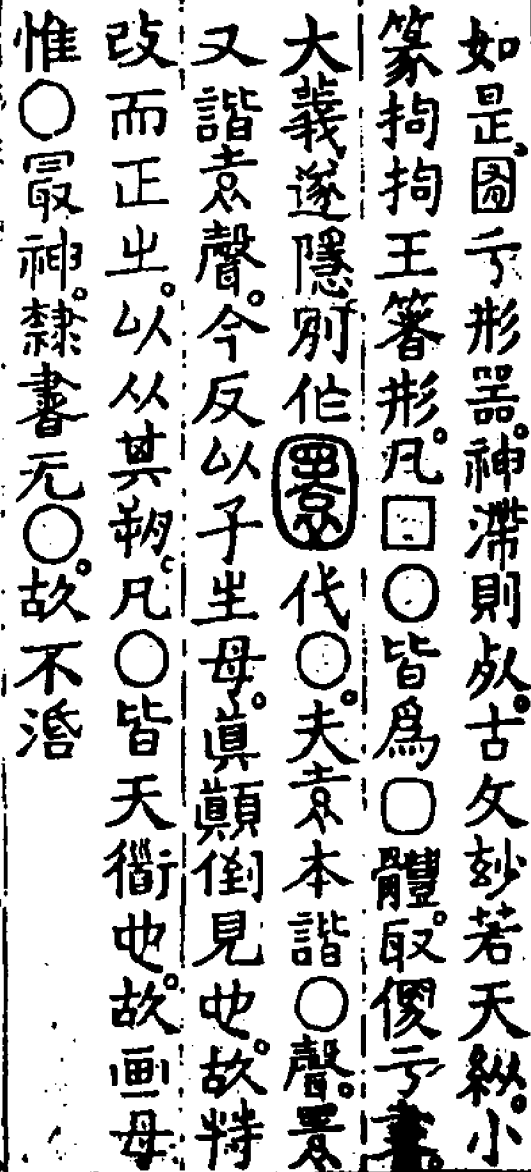 如是。圖亏形器。神滯則歺。古文玅若天縱。小
篆拘拘王箸形。凡□○皆爲▢體。取便亏書。
大義遂隱。別作圜代○。夫袁本諧○聲。睘
又諧袁聲。今反以子生母。眞顚倒見也。故特
改而正㞢。以从其朔。凡○皆天衜也。故画毋
惟○冣神。隸書无○。故不湣